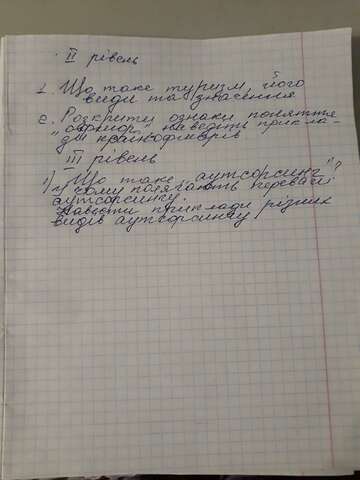 II рівень
1. Що таке туризм, його
види та значення
2. Розкрити ознаки поняття
"офшор", наведіть прикла-
ди країн офшорів
III рівень
1) Що таке „аутсорсинг"?
У чому полягають переваги
аутсорсингу.
Навести приклади різних
видів аутсорсингу